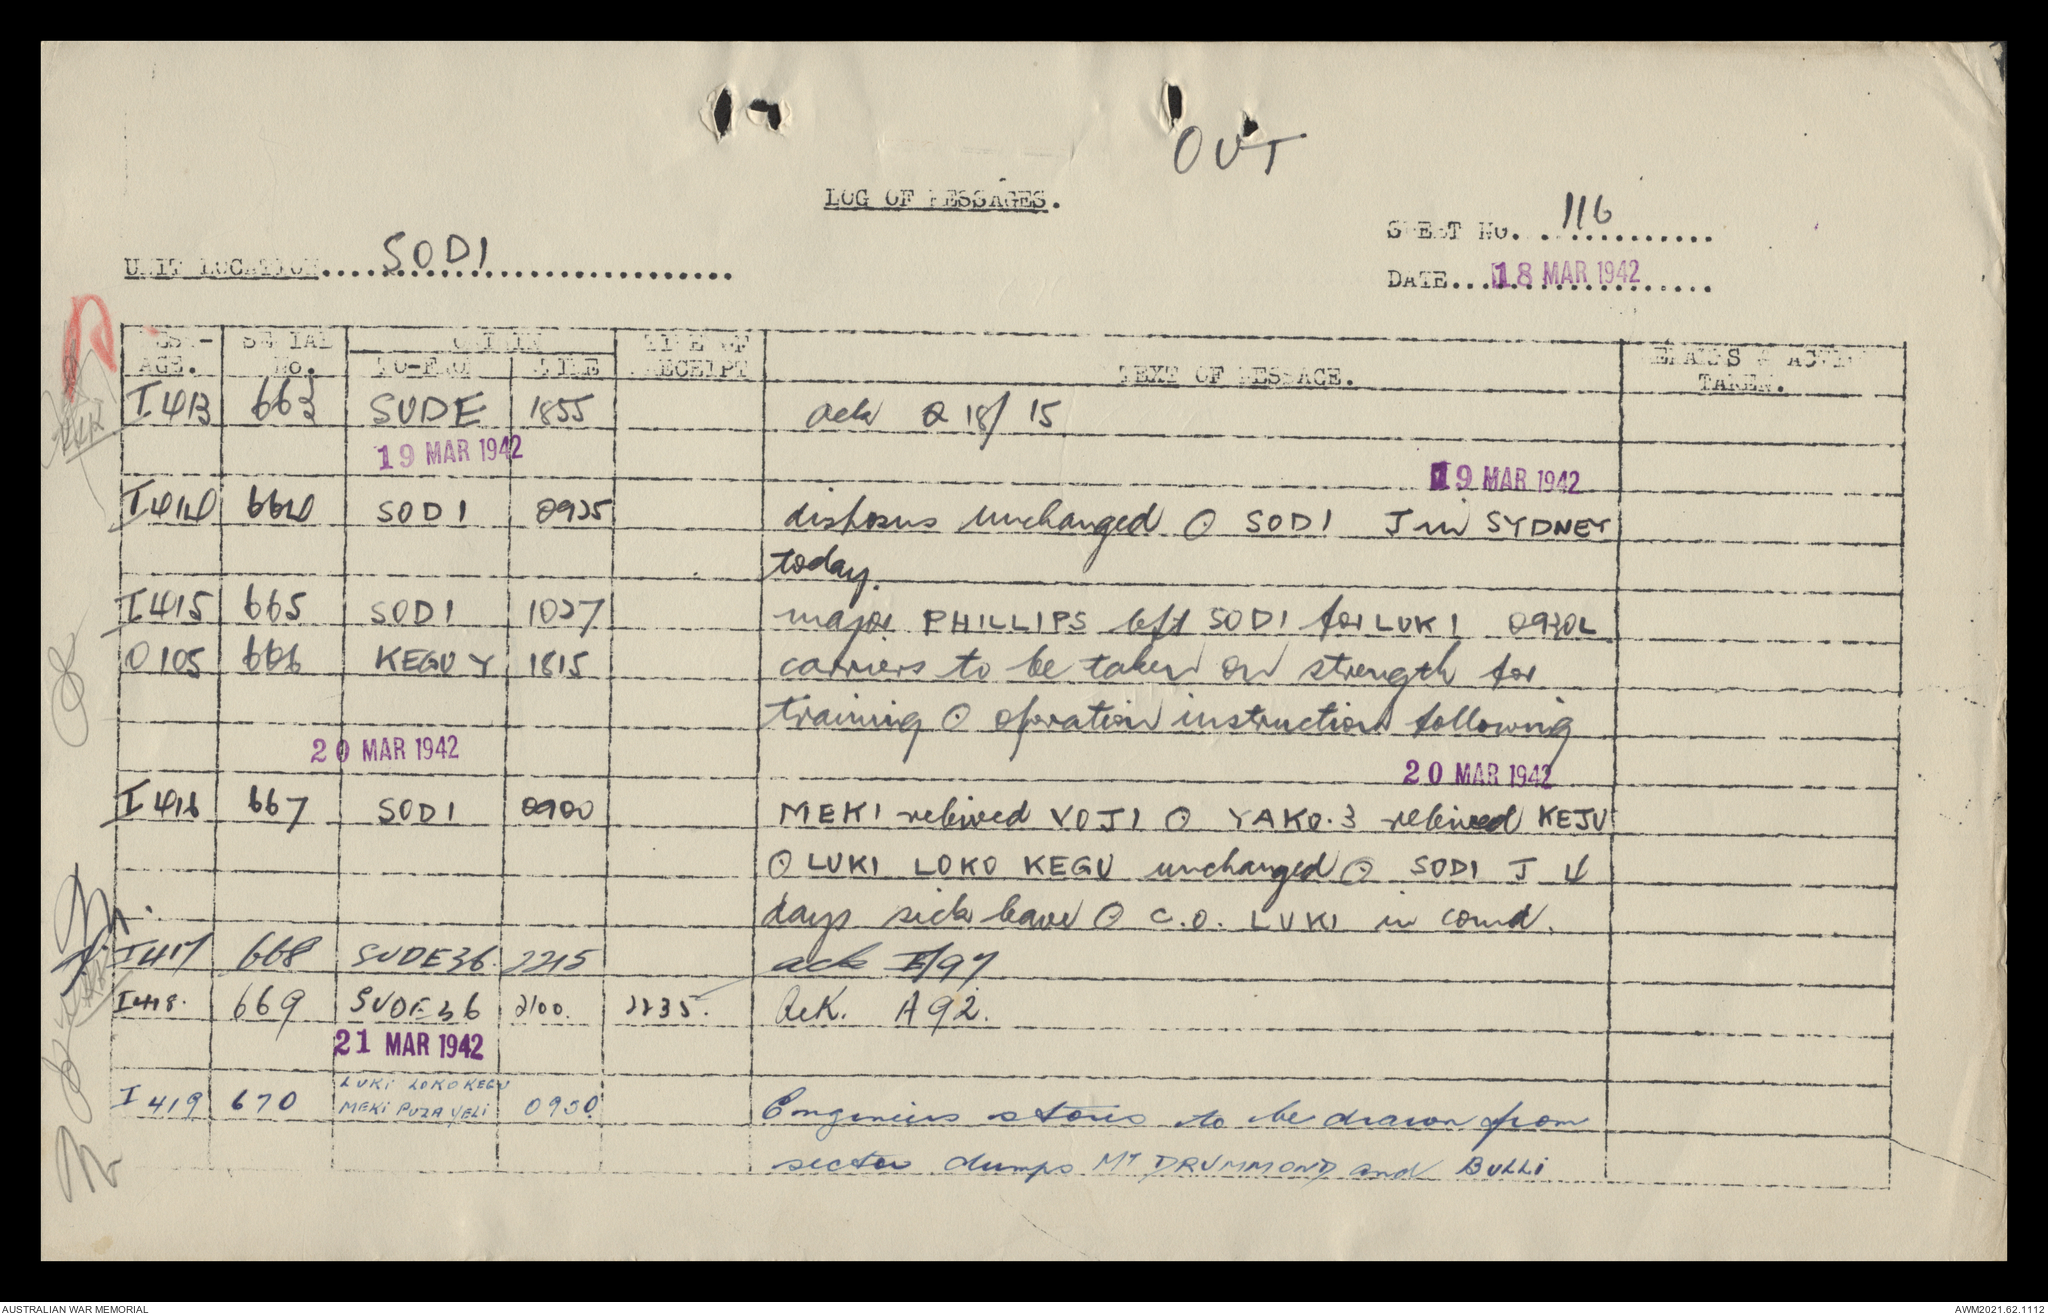 OUT
LOG OF MESSAGES.
SHEET NO. 116
UNIT LOCATION SODI
DATE 18 MAR 1942
MESS- SERIAL ORIGIN TIME OF REMARKS & ACTION
AGE. No. TO-FROM TIME RECEIPT TEXT OF MESSAGE. TAKEN.
I 413 663 SUDE 1855 ack Q 18/15
19 MAR 1942
19 MAR 1942
I 414 664 SODI 0925 disposns unchanged ⊙ SODI J in SYDNEY
today.
I 415 665 SODI 1027 major PHILLIPS left SODI for LUKI 0930L
O 105 666 KEGU Y 1815 carriers to be taken on strength for
training ⊙ operation instruction following
20 MAR 1942
20 MAR 1942
I 416 667 SODI 0900 MEKI relieved VOJI ⊙ YAKO.3 relieved KEJU
⊙ LUKI LOKO KEGU unchanged ⊙ SODI J 4
days sick leave ⊙ C.O. LUKI in comd.
I 417 668 SUDE36 2215 ack I/97
I 418. 669 SUDE36 2100. 2235. Ack. A92.
21 MAR 1942
LUKI LOKO KEGU
I 419 670 MEKI PUZA VELI 0930 Engineers stores to be drawn from
sector dumps MT DRUMMOND and BULLI
AUSTRALIAN WAR MEMORIAL
AWM2021.62.1112